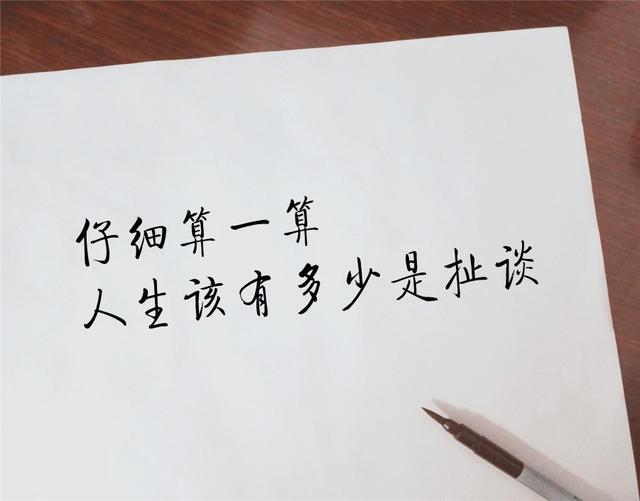 仔细算一算
人生该有多少是扯谈